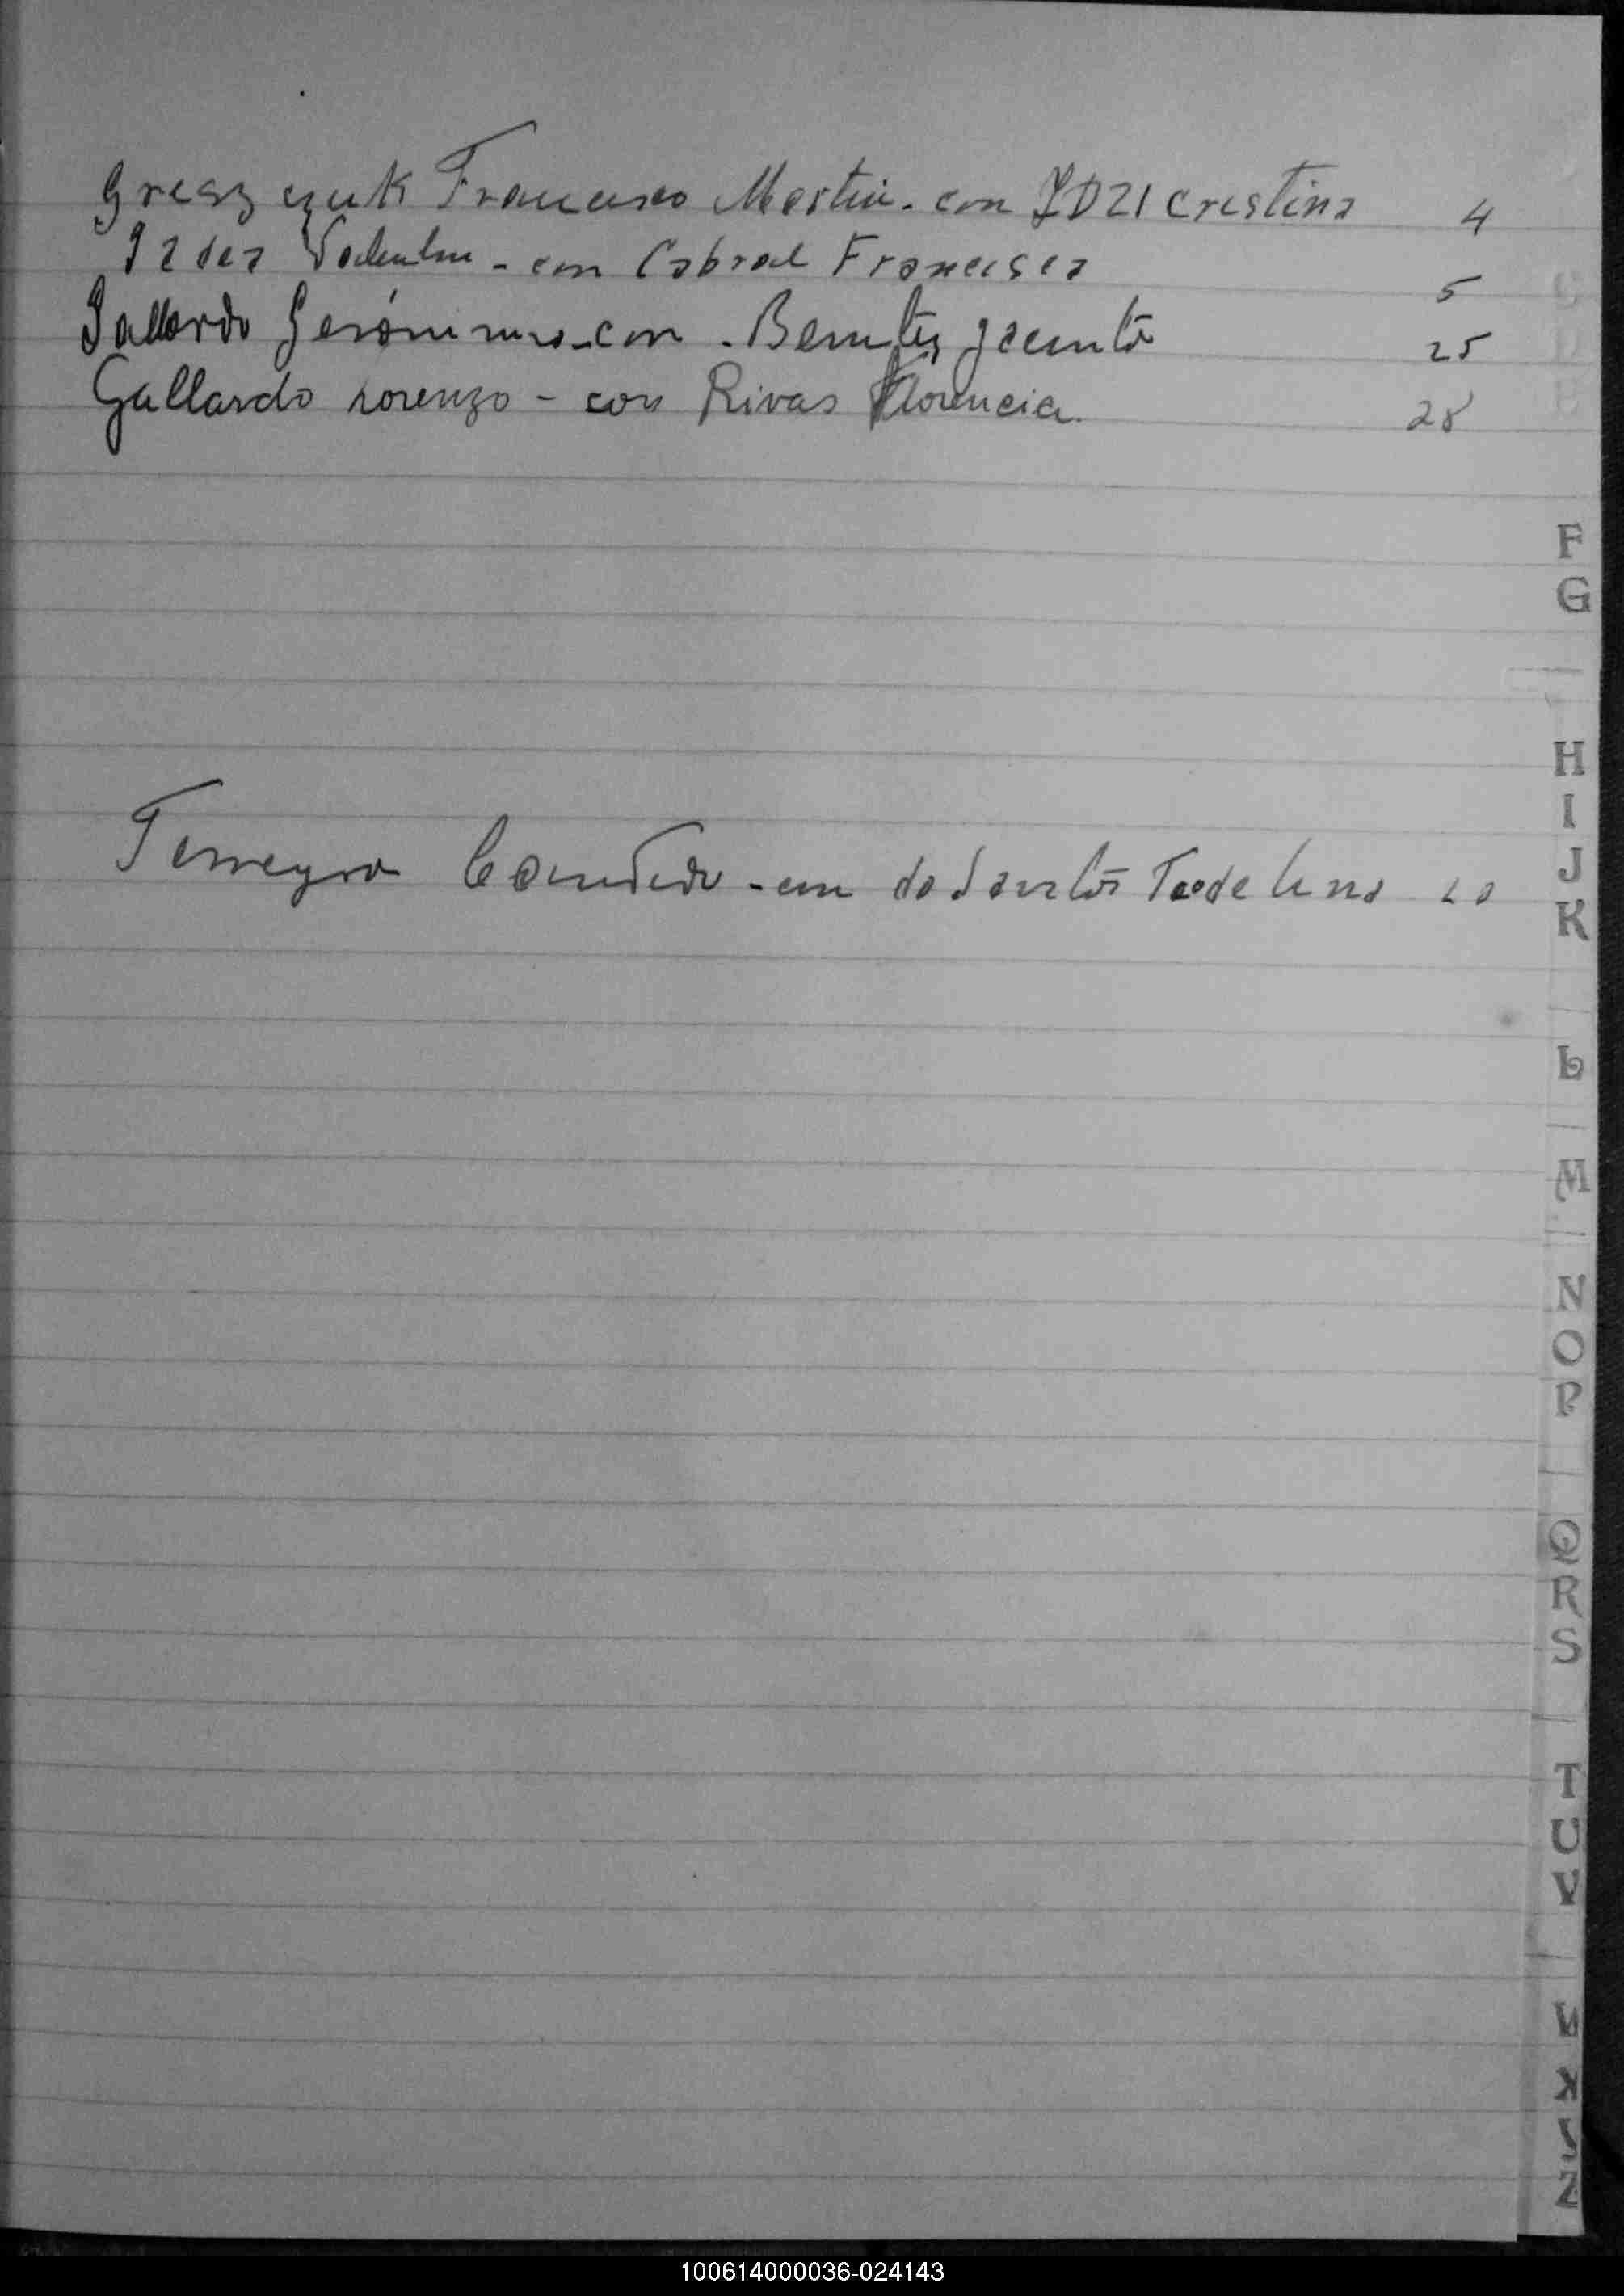 Greszczuk Francisco Martin - con con Cristina 4
Valentin - con Cabral Francisca 5
Gallardo Gerónimo - con - Benitez Jacinta 25
Gallardo Lorenzo - con Rivas Florencia. 28
F
G
H
I
J
K
Ferreyra Candido - con do Santos 20
L
M
N
O
P
Q
R
S
T
U
V
X
Z
100614000036-024143